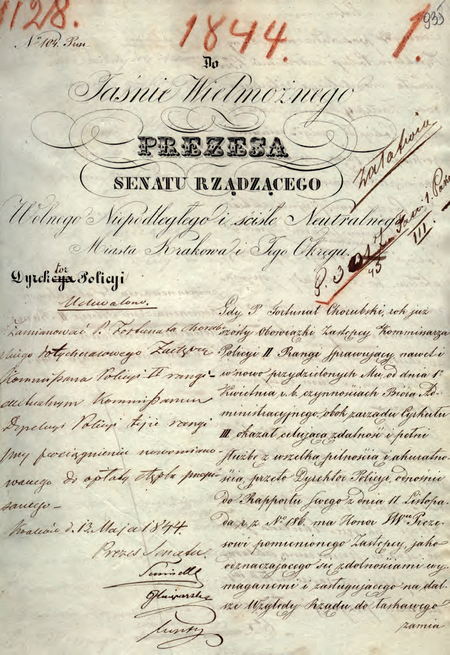 1128.
1844.
1.
935
N° 104. Prez.
Do
Jaśnie Wielmożnego
PREZESA
SENATU RZĄDZĄCEGO
Wolnego Niepodległego i ściśle Neutralnego
Miasta Krakowa i Jego Okręgu.
Załatwia
III
Dyrektor Policyi
Uchwalono.
Zamianować P. Fortunata
dotychczasowego Zastępcę
Kommissarza Policyi II rangi
aktualnym Kommissarzem
Policyi tejże rangi
przy pociągnieniu nowomiano-
wanego do opłaty stępla
Kraków d. 12 Maja 1844.
Prezes Senatu
Gdy P. Fortunat Chorubski, rok już
Obowiązki Zastępcy Kommisarza
Policyi II Rangi sprawujący, nawet i
w nowo przydzielonych Mu od dnia 1°
Kwietnia r. b. czynnościach Biura Ad-
ministracyjnego, obok zarządu Cyrkułu
III okazał celującą zdatność i pełni
służbę z wszelką pilnością i akuratno-
ścią, przeto Dyrektor Policyi, odnośnie
do Rapportu swego z dnia 11 Listopa-
da r. z. N° 186. ma Honor JWmu Preze-
sowi pomienionego Zastępcę, jako
odznaczającego się zdolnościami wy-
maganemi i zasługującego na dal-
sze Względy Rządu, do łaskawego
zamia